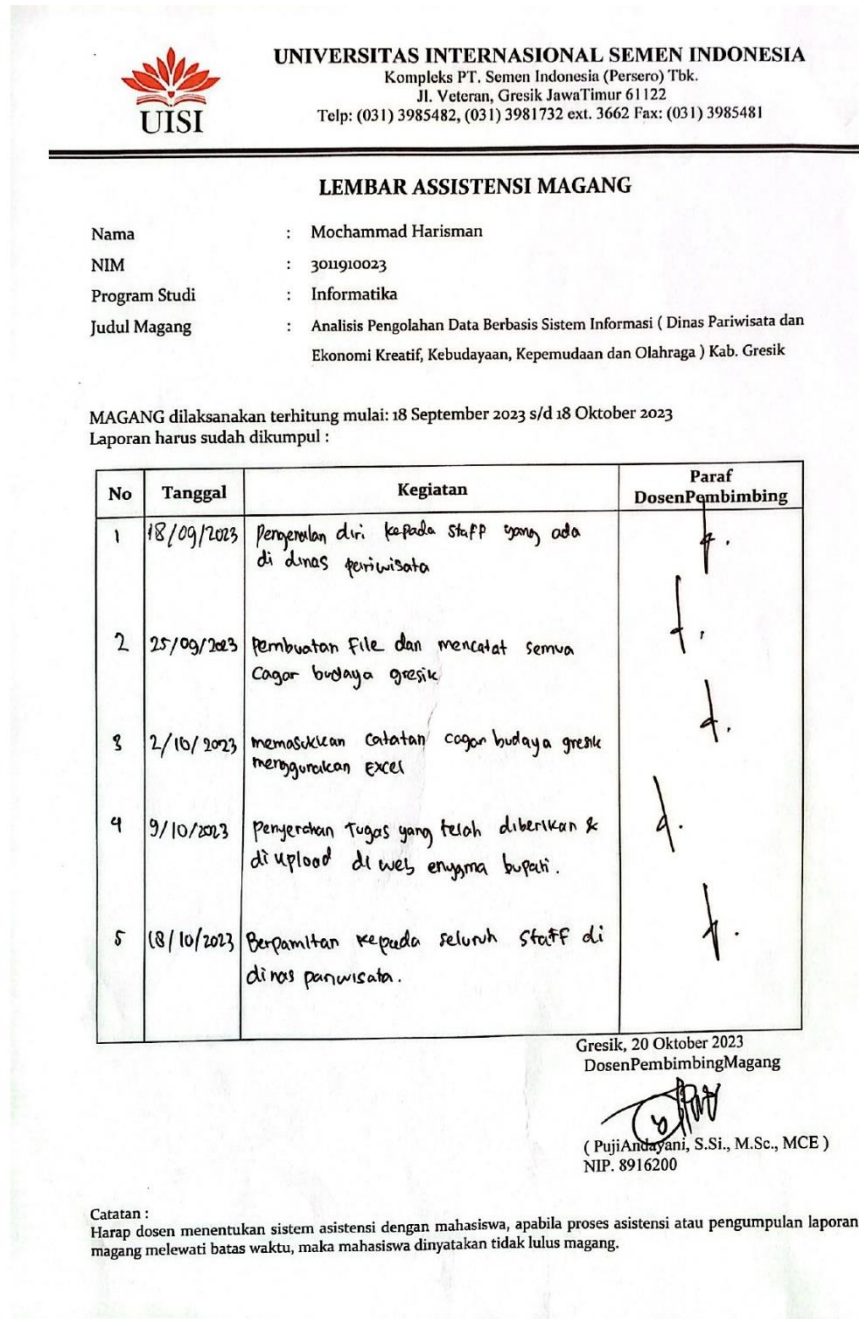 UISI
UNIVERSITAS INTERNASIONAL SEMEN INDONESIA
Kompleks PT. Semen Indonesia (Persero) Tbk.
Jl. Veteran, Gresik JawaTimur 61122
Telp: (031) 3985482, (031) 3981732 ext. 3662 Fax: (031) 3985481
LEMBAR ASSISTENSI MAGANG
Nama : Mochammad Harisman
NIM : 3011910023
Program Studi : Informatika
Judul Magang : Analisis Pengolahan Data Berbasis Sistem Informasi ( Dinas Pariwisata dan
Ekonomi Kreatif, Kebudayaan, Kepemudaan dan Olahraga ) Kab. Gresik
MAGANG dilaksanakan terhitung mulai: 18 September 2023 s/d 18 Oktober 2023
Laporan harus sudah dikumpul :
No Tanggal Kegiatan Paraf
DosenPembimbing
1 18/09/2023 Pengenalan diri kepada staff yang ada
di dinas pariwisata
2 25/09/2023 Pembuatan File dan mencatat semua
Cagar budaya gresik
3 2/10/2023 memasukkan catatan cagar budaya gresik
menggunakan Excel
4 9/10/2023 Penyerahan Tugas yang telah diberikan &
di upload di web enygma bupati.
5 18/10/2023 Berpamitan kepada seluruh staff di
dinas pariwisata.
Gresik, 20 Oktober 2023
DosenPembimbingMagang
( PujiAndayani, S.Si., M.Sc., MCE )
NIP. 8916200
Catatan :
Harap dosen menentukan sistem asistensi dengan mahasiswa, apabila proses asistensi atau pengumpulan laporan
magang melewati batas waktu, maka mahasiswa dinyatakan tidak lulus magang.